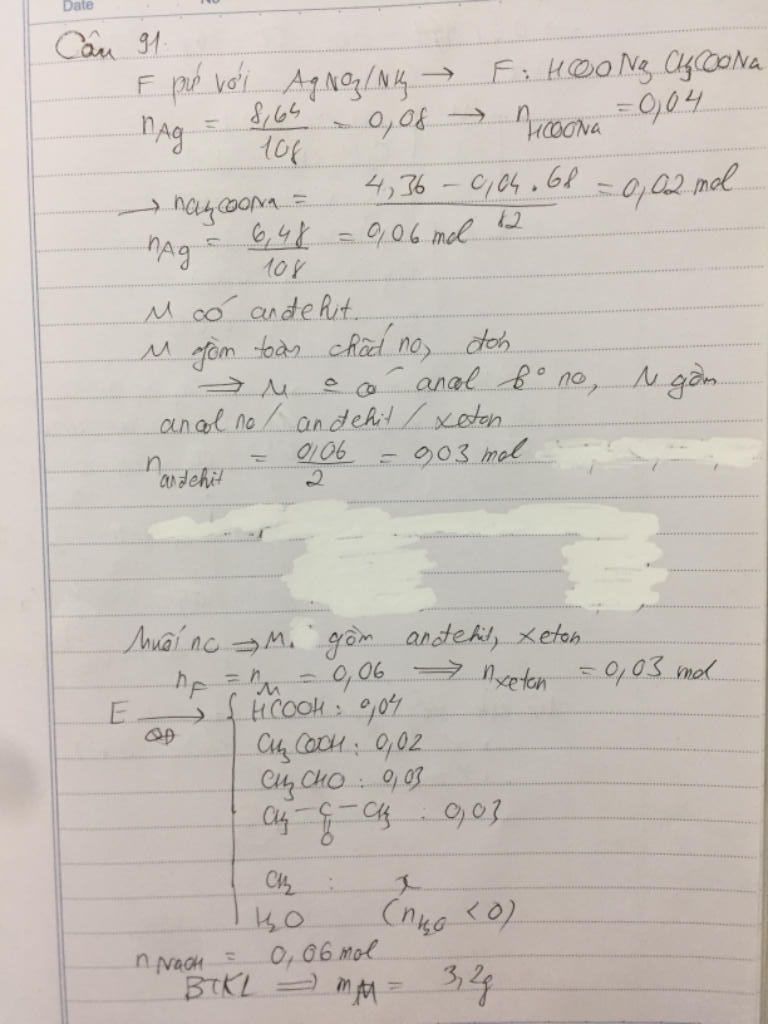 Date No
Câu 91.
F pứ với AgNO3/NH3 → F: HCOONa, CH3COONa
nAg = 8,64/108 = 0,08 → nHCOONa = 0,04
→ nCH3COONa = (4,36 - 0,04.68)/82 = 0,02 mol
nAg = 6,48/108 = 0,06 mol
M có anđehit.
M gồm toàn chất no, đơn
⇒ M có ancol bº no, M gồm
ancol no/ anđehit/ xeton
nanđehit = 0,06/2 = 0,03 mol
Muối no ⇒ M. gồm anđehit, xeton
nF = nM = 0,06 ⇒ nxeton = 0,03 mol
E → QĐ { HCOOH: 0,04
CH3COOH: 0,02
CH3CHO: 0,03
CH3-C-CH3 : 0,03
O
CH2 : x
H2O (nH2O < 0)
nNaOH = 0,06 mol
BTKL ⇒ mM = 3,2g